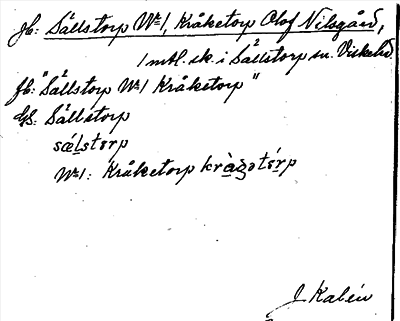 jb: Sällstorp No 1, Kråketorp Olof Nilsgård,
1 mtl. sk. i Sällstorp sn. Viske hd.
fb: "Sällstorp No 1 Kråketorp"
GS: Sällstorp
sǽlstórp
No 1: Kråketorp kràgətórp
J. Kalén